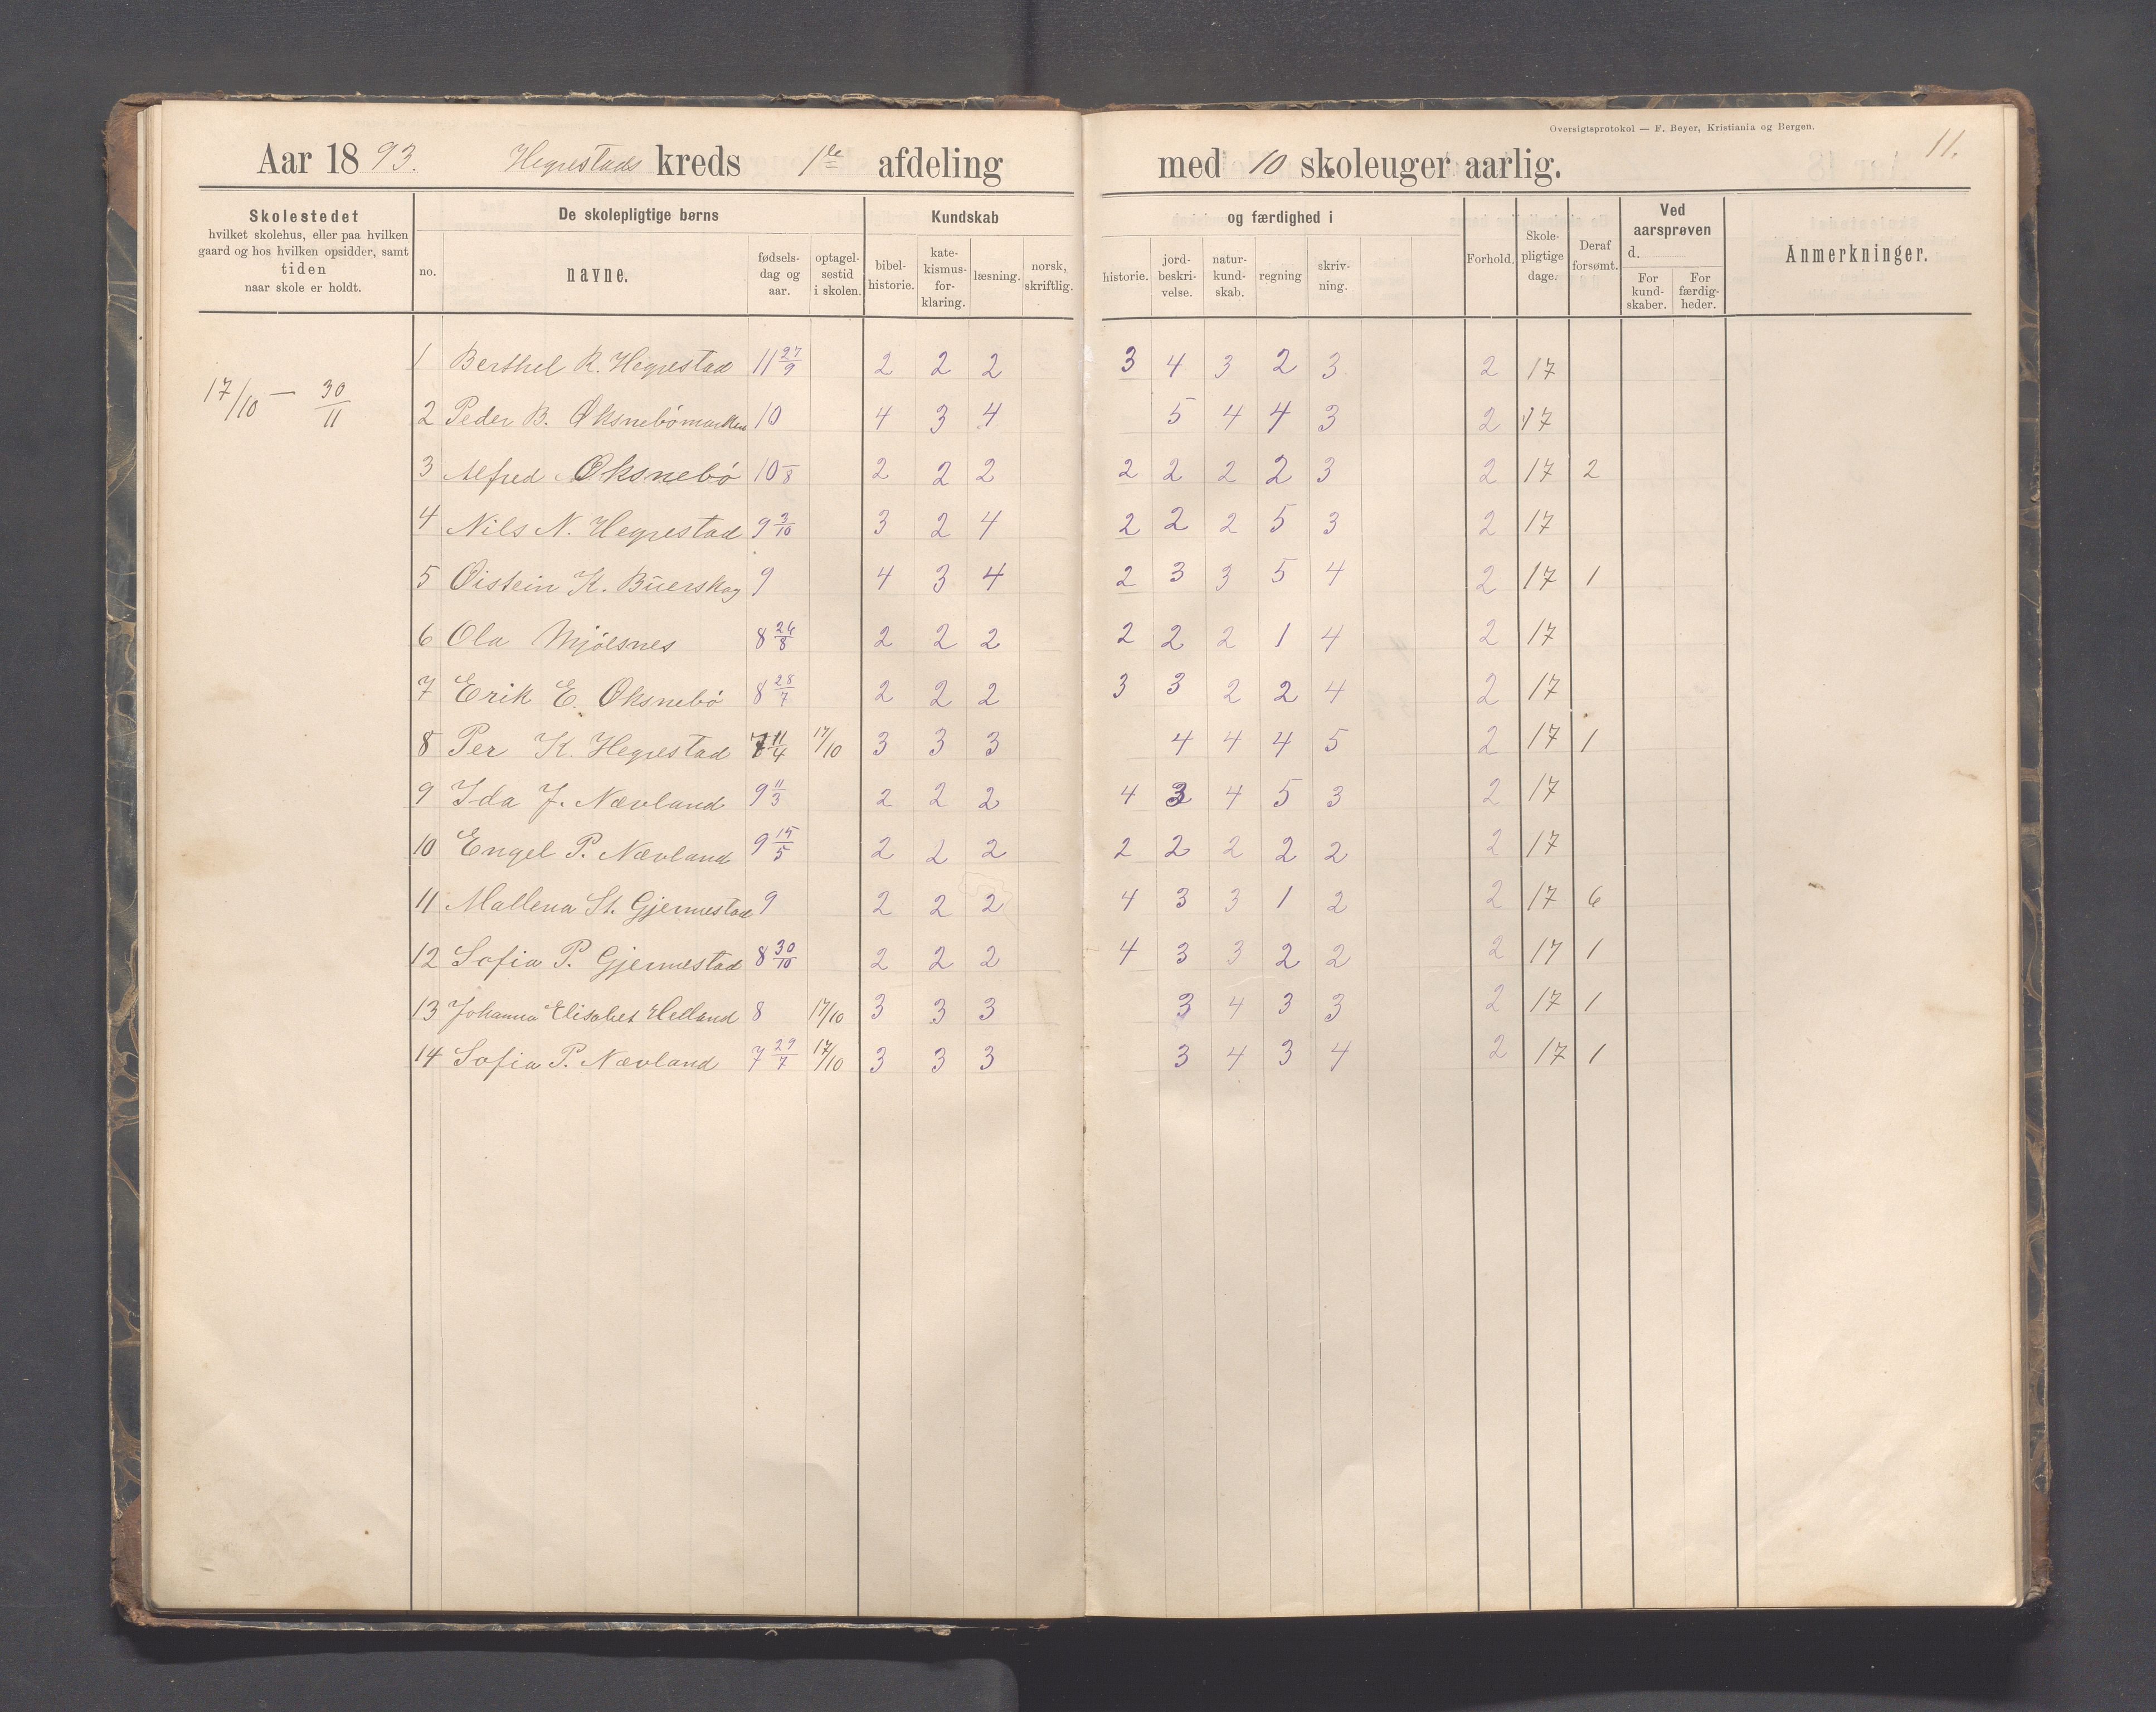 Oversigtsprotokol — F. Beyer, Kristiania og Bergen.
11.
Aar 1893. Hegrestads kreds 1ste afdeling med 10 skoleuger aarlig.
Skolestedet hvilket skolehus, eller paa hvilken gaard og hos hvilken opsidder, samt tiden naar skole er holdt. De skolepligtige børns Kundskab og færdighed i Forhold. Skole-pligtige dage. Deraf forsømt. Ved aarsprøven d. Anmerkninger.
no. navne. fødsels-dag og aar. optagel-sestid i skolen. bibel-historie. kate-kismus-for-klaring. læsning. norsk, skriftlig. historie. jord-beskri-velse. natur-kund-skab. regning skriv-ning. For kund-skaber. For færdig-heder.
17/10 — 30/11
1 Berthel R. Hegrestad 11 27/9 2 2 2 3 4 3 2 3 2 17
2 Peder B. Øksnebømarken 10 4 3 4 5 4 4 3 2 17
3 Alfred Øksnebø 10 –/8 2 2 2 2 2 2 2 3 2 17 2
4 Nils N. Hegrestad 9 3/10 3 2 4 2 2 2 5 3 2 17
5 Øistein K. Buerskog 9 4 3 4 2 3 3 5 4 2 17 1
6 Ola Mjølsnes 8 26/8 2 2 2 2 2 2 1 4 2 17
7 Erik E. Øksnebø 8 28/7 2 2 2 3 3 2 2 4 2 17
8 Per K. Hegrestad 7 11/4 17/10 3 3 3 4 4 4 5 2 17 1
9 Ida J. Nævland 9 11/3 2 2 2 4 3 4 5 3 2 17
10 Engel P. Nævland 9 15/5 2 2 2 2 2 2 2 2 2 17
11 Mallena St. Gjermestad 9 2 2 2 4 3 3 1 2 2 17 6
12 Sofia P. Gjermestad 8 30/10 2 2 2 4 3 3 2 2 2 17 1
13 Johanna Elisabet Helland 8 17/10 3 3 3 3 4 3 3 2 17 1
14 Sofia P. Nævland 7 29/7 17/10 3 3 3 3 4 3 4 2 17 1